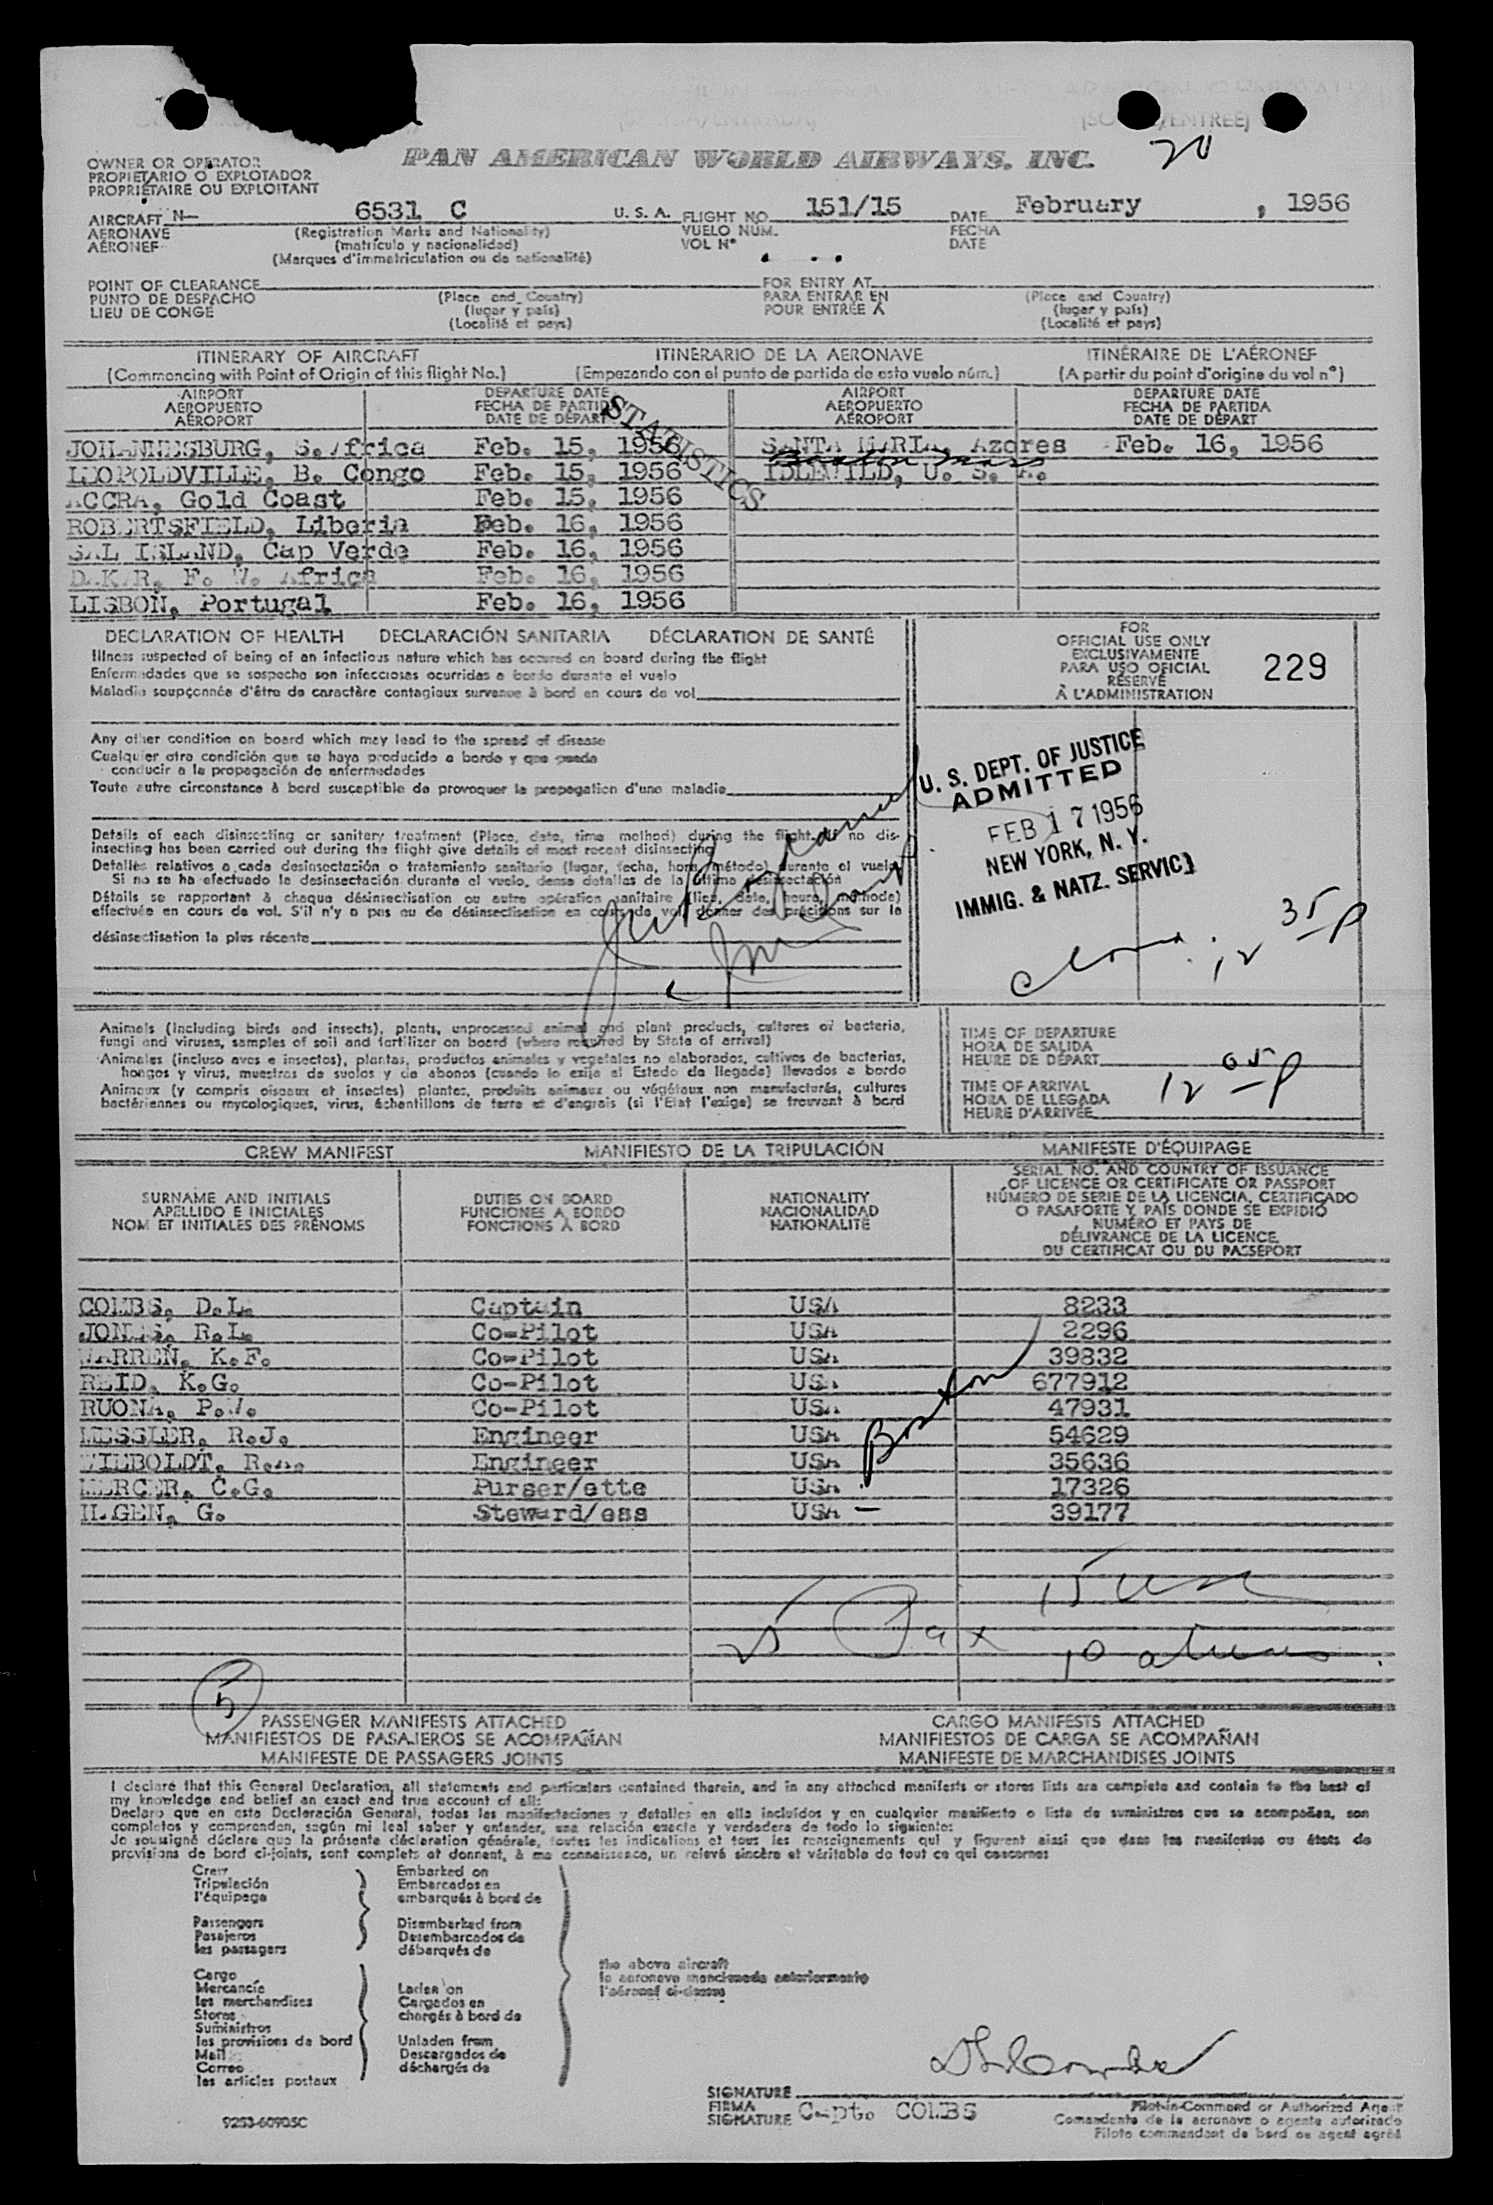 20
OWNER OR OPERATOR
PROPIETARIO O EXPLOTADOR
PROPRIÉTAIRE OU EXPLOITANT
PAN AMERICAN WORLD AIRWAYS, INC.
AIRCRAFT N- 6531 C U. S. A. FLIGHT NO. 151/15 DATE February , 1956
AERONAVE (Registration Marks and Nationality) VUELO NÚM. FECHA
AÉRONEF (matrícula y nacionalidad) VOL Nº DATE
(Marques d'immatriculation ou de nationalité)
POINT OF CLEARANCE FOR ENTRY AT
PUNTO DE DESPACHO (Place and Country) PARA ENTRAR EN (Place and Country)
LIEU DE CONGÉ (lugar y país) POUR ENTRÉE A (lugar y país)
(Localité et pays) (Localité et pays)
ITINERARY OF AIRCRAFT ITINERARIO DE LA AERONAVE ITINÉRAIRE DE L'AÉRONEF
(Commencing with Point of Origin of this flight No.) (Empezando con el punto de partida de esto vuelo núm.) (A partir du point d'origine du vol nº)
AIRPORT DEPARTURE DATE AIRPORT DEPARTURE DATE
AEROPUERTO FECHA DE PARTIDA AEROPUERTO FECHA DE PARTIDA
AÉROPORT DATE DE DÉPART AÉROPORT DATE DE DÉPART
STATISTICS
JOHANNESBURG, S. Africa Feb. 15, 1956 SANTA MARIA, Azores Feb. 16, 1956
Boston Mass
LEOPOLDVILLE, B. Congo Feb. 15, 1956 IDLEWILD, U. S. A.
ACCRA, Gold Coast Feb. 15, 1956
ROBERTSFIELD, Liberia Feb. 16, 1956
SAL ISLAND, Cap Verde Feb. 16, 1956
DAKAR, F. W. Africa Feb. 16, 1956
LISBON, Portugal Feb. 16, 1956
DECLARATION OF HEALTH DECLARACIÓN SANITARIA DÉCLARATION DE SANTÉ
Illness suspected of being of an infectious nature which has occured on board during the flight
Enfermedades que se sospecha son infecciosas ocurridas a bordo durante el vuelo
Maladie soupçonnée d'être de caractère contagieux survenue à bord en cours de vol
FOR
OFFICIAL USE ONLY
EXCLUSIVAMENTE
PARA USO OFICIAL
RÉSERVÉ
À L'ADMINISTRATION
229
Any other condition on board which may lead to the spread of disease
Cualquier otra condición que se haya producido a bordo y que pueda
conducir a la propagación de enfermedades
Toute autre circonstance à bord susceptible de provoquer la propagation d'une maladie
U. S. DEPT. OF JUSTICE
ADMITTED
FEB 17 1956
NEW YORK, N. Y.
IMMIG. & NATZ. SERVICE
Details of each disinsecting or sanitary treatment (Place, date, time method) during the flight. If no dis-
insecting has been carried out during the flight give details of most recent disinsecting
Detalles relativos a cada desinsectación o tratamiento sanitario (lugar, fecha, hora, método) durante el vuelo.
Si no se ha efectuado la desinsectación durante el vuelo, dense detalles de la última desinsectación
Détails se rapportant à chaque désinsectisation ou autre opération sanitaire (lieu, date, heure, méthode)
effectuée en cours de vol. S'il n'y a pas eu de désinsectisation en cours de vol, donner des précisions sur la
désinsectisation la plus récente
12 35 P
Animals (including birds and insects), plants, unprocessed animal and plant products, cultures of bacteria,
fungi and viruses, samples of soil and fertilizer on board (where required by State of arrival)
Animales (incluso aves e insectos), plantas, productos animales y vegetales no elaborados, cultivos de bacterias,
hongos y virus, muestras de suelos y de abonos (cuando lo exija el Estado de llegada) llevados a bordo
Animaux (y compris oiseaux et insectes) plantes, produits animaux ou végétaux non manufacturés, cultures
bactériennes ou mycologiques, virus, échantillons de terre et d'engrais (si l'Etat l'exige) se trouvant à bord
TIME OF DEPARTURE
HORA DE SALIDA
HEURE DE DÉPART
TIME OF ARRIVAL
HORA DE LLEGADA
HEURE D'ARRIVÉE
12 05 P
CREW MANIFEST MANIFIESTO DE LA TRIPULACIÓN MANIFESTE D'ÉQUIPAGE
SURNAME AND INITIALS
APELLIDO E INICIALES
NOM ET INITIALES DES PRÉNOMS
DUTIES ON BOARD
FUNCIONES A BORDO
FONCTIONS À BORD
NATIONALITY
NACIONALIDAD
NATIONALITÉ
SERIAL NO. AND COUNTRY OF ISSUANCE
OF LICENCE OR CERTIFICATE OR PASSPORT
NÚMERO DE SERIE DE LA LICENCIA, CERTIFICADO
O PASAPORTE Y PAÍS DONDE SE EXPIDIÓ
NUMÉRO ET PAYS DE
DÉLIVRANCE DE LA LICENCE,
DU CERTIFICAT OU DU PASSEPORT
COMBS, D.L. Captain USA 8233
JONES, R.L. Co-Pilot USA 2296
WARREN, K.F. Co-Pilot USA 39832
REID, K.G. Co-Pilot USA 677912
RUONA, P.W. Co-Pilot USA 47931
MESSLER, R.J. Engineer USA 54629
WIEBOLDT, Engineer USA 35636
MERCER, C.G. Purser/ette USA 17326
ILGEN, G. Steward/ess USA - 39177
Boston
Pax
15 USC
10 aliens
5
PASSENGER MANIFESTS ATTACHED CARGO MANIFESTS ATTACHED
MANIFIESTOS DE PASAJEROS SE ACOMPAÑAN MANIFIESTOS DE CARGA SE ACOMPAÑAN
MANIFESTE DE PASSAGERS JOINTS MANIFESTE DE MARCHANDISES JOINTS
I declare that this General Declaration, all statements and particulars contained therein, and in any attached manifests or stores lists are complete and contain to the best of
my knowledge and belief an exact and true account of all:
Declaro que en esta Declaración General, todas las manifestaciones y detalles en ella incluidos y en cualqvier manifiesto o lista de suministros que se acompañan, son
completos y comprenden, según mi leal saber y entender, una relación exacta y verdadera de todo lo siguiente:
Je soussigné déclare que la présente déclaration générale, toutes les indications et tous les renseignements qui y figurent ainsi que dans les manifestes ou états de
provisions de bord ci-joints, sont complets et donnent, à ma connaissance, un relevé sincère et véritable de tout ce qui concerne:
Crew Embarked on
Tripulación Embarcados en
l'équipage embarqués à bord de
Passengers Disembarked from
Pasajeros Desembarcados de
les passagers débarqués de
the above aircraft
la aeronave mencionada anteriormente
l'aéronef ci-dessus
Cargo
Mercancía Laden on
les merchandises Cargados en
Stores chargés à bord de
Suministros
les provisions de bord Unladen from
Mail Descargados de
Correo déchargés de
les articles postaux
DLCombs
SIGNATURE
FIRMA
SIGNATURE
Capt. COMBS
Pilot-in-Command or Authorized Agent
Comandante de la aeronave o agente autorizado
Pilote commandant de bord ou agent agréé
9253-60905C